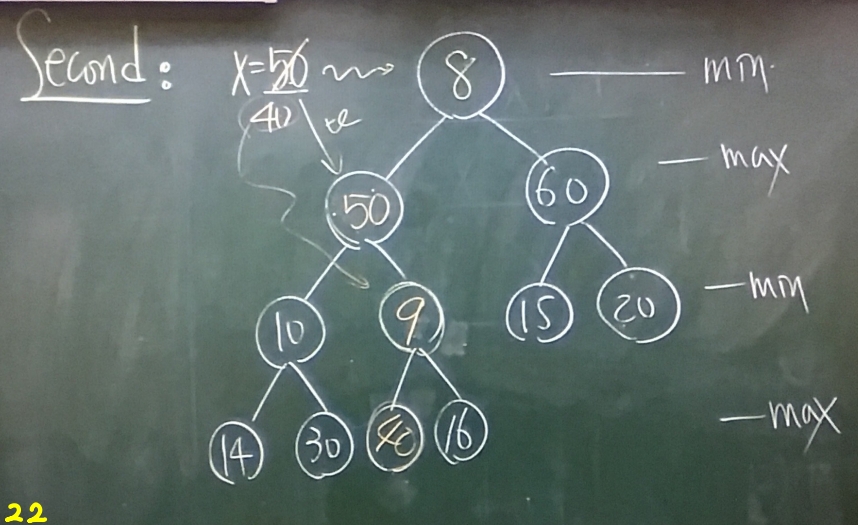 Second: X=50 8 min
40
50 60 max
10 9 15 20 min
14 30 40 16 max
22